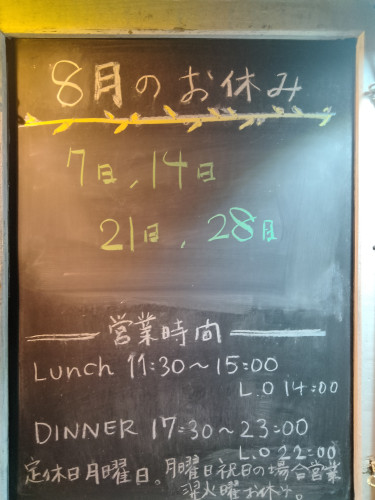 8月のお休み
7日, 14日
21日, 28日
営業時間
Lunch 11:30～15:00
L.O 14:00
DINNER 17:30～23:00
L.O 22:00
定休日月曜日。月曜日祝日の場合営業
翌火曜お休み。